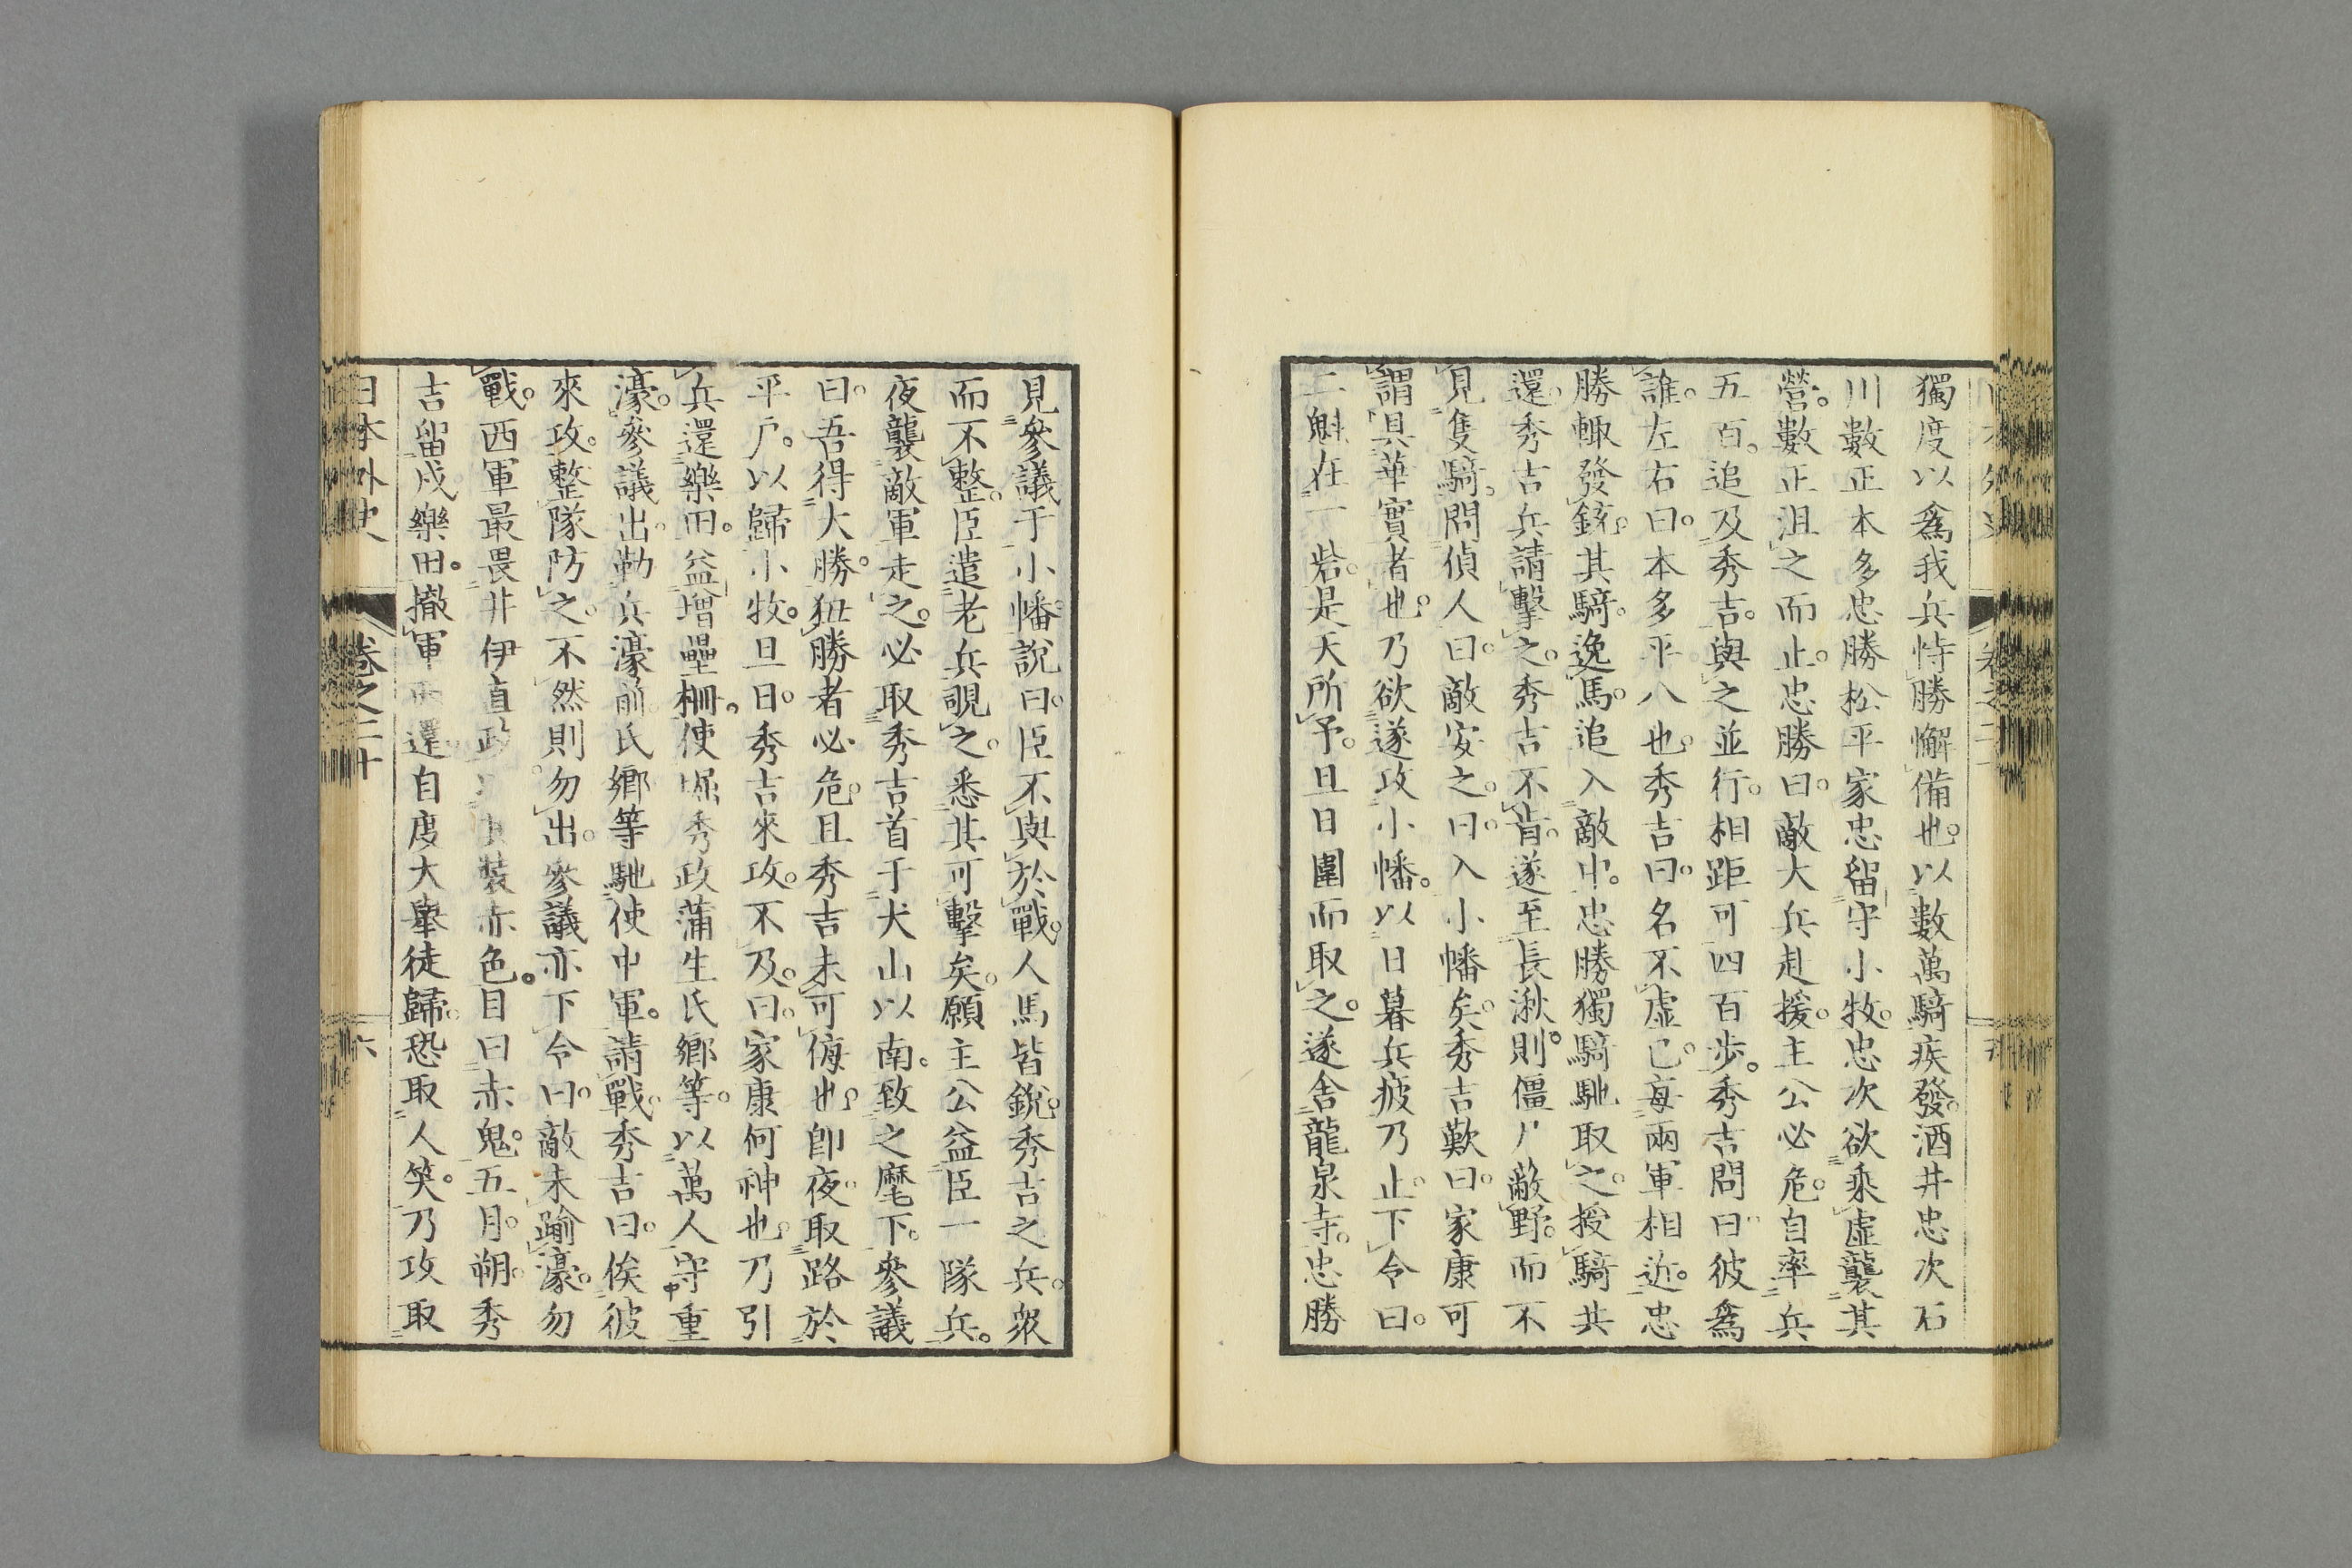 獨度以爲我兵恃勝懈備也。以數萬騎疾發。酒井忠次石
川數正本多忠勝松平家忠留守小牧。忠次欲乘虛襲其
營。數正沮之而止。忠勝曰。敵大兵赴援。主公必危。自率兵
五百。追及秀吉。與之並行。相距可四百步。秀吉問曰彼爲
誰。左右曰。本多平八也。秀吉曰。名不虛已。每兩軍相近。忠
勝輙發銃。其騎。逸馬。追入敵中。忠勝獨騎馳取之。授騎共
還。秀吉兵請擊之。秀吉不肯。遂至長湫。則僵尸敵野。而不
見隻騎。問偵人曰。敵安之。曰。入小幡矣。秀吉歎曰。家康可
謂具華實者也。乃欲遂攻小幡。以日暮兵疲乃止。下令曰。
二魁在一砦。是天所予。旦日圍而取之。遂舍龍泉寺。忠勝
見參議于小幡說曰。臣不與於戰。人馬皆銳。秀吉之兵。衆
而不整。臣遣老兵覘之。悉其可擊矣。願主公益臣一隊兵。
夜襲敵軍走之。必取秀吉首于犬山以南。致之麾下。參議
曰。吾得大勝。狃勝者必危。且秀吉未可侮也。卽夜。取路於
平戶。以歸小牧。旦日。秀吉來攻。不及。曰。家康何神也。乃引
兵還樂田。益增壘柵。使堀秀政蒲生氏鄉等。以萬人守重
濠。參議出勒兵濠前。氏鄉等馳使中軍。請戰。秀吉曰。俟彼
來攻。整隊防之。不然則勿出。參議亦下令曰。敵未踰濠。勿
戰。西軍最畏井伊直政其裝赤色。目曰赤鬼。五月。朔。秀
吉留戍樂田。撤軍西還。自度大舉徒歸。恐取人笑。乃攻取
日本外史 卷之二十 六